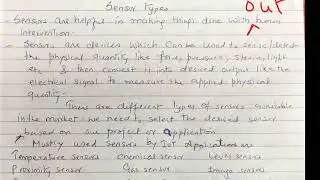 Sensor Types
out
- Sensors are helpful in making things done with human
intervention.
- Sensors are devices which can be used to sense/detect
the physical quantity like force, pressure, strain, light
etc & then convert it into desired output like the
electrical signal to measure the applied physical
quantity.
There are different types of sensors available
in the market we need to select the desired sensor
based on our project or application
* Mostly used sensors by IoT Applications are
Temperature sensors chemical sensor Level sensors
Proximity sensor Gas sensor Image sensors